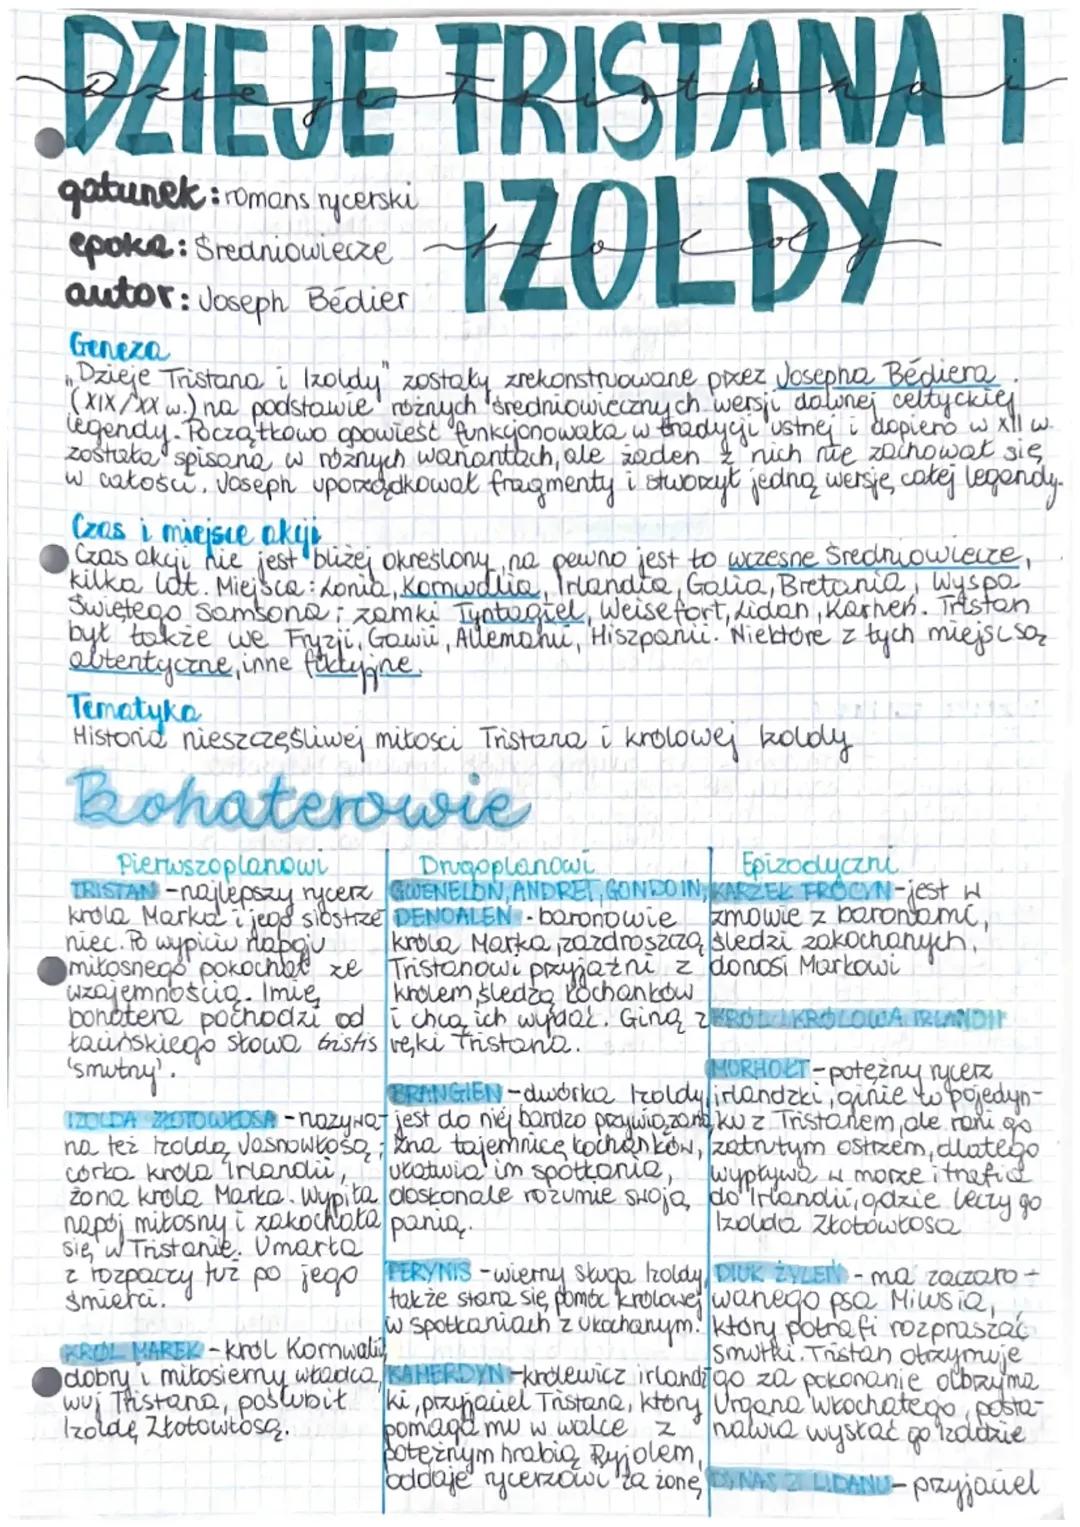 DZIEJE TRISTANA I
Dzieje Tristana i
IZOLDY
Izoldy
gatunek: romans rycerski
epoka: Średniowiecze
autor: Joseph Bédier
Geneza
"Dzieje Tristana i Izoldy" zostały zrekonstruowane przez Josepha Bédiera
(XIX/XX w.) na podstawie różnych średniowiecznych wersji dawnej celtyckiej
legendy. Początkowo opowieść funkcjonowała w tradycji ustnej i dopiero w XII w.
została spisana w różnych wariantach, ale żaden z nich nie zachował się
w całości. Joseph uporządkował fragmenty i stworzył jedną wersję całej legendy.
Czas i miejsce akcji
Czas akcji nie jest bliżej określony, na pewno jest to wczesne Średniowiecze,
kilka lat. Miejsca: Lonia, Kornwalia, Irlandia, Galia, Bretania, Wyspa
Świętego Samsona; zamki Tyntagiel, Weisefort, Lidan, Karhen. Tristan
był także we Fryzji, Gawii, Allemanii, Hiszpanii. Niektóre z tych miejsc są
autentyczne, inne fikcyjne.
Tematyka
Historia nieszczęśliwej miłosci Tristana i królowej Izoldy
Bohaterowie
Pierwszoplanowi
TRISTAN - najlepszy rycerz
króla Marka i jego siostrze
niec. Po wypiciu napoju
miłosnego pokochał ze
wzajemnością. Imię
bohatera pochodzi od
łacińskiego słowa tristis
'smutny'.
IZOLDA ZŁOTOWŁOSA - nazywa-
na też Izoldą Jasnowłosą;
córka króla Irlandii,
żona króla Marka. Wypiła
napój miłosny i zakochała
się w Tristanie. Umarła
z rozpaczy tuż po jego
śmierci.
KRÓL MAREK - król Kornwalii,
dobry i miłosierny władca,
wuj Tristana, poślubił
Izoldę Złotowłosą.
Drugoplanowi
GWENELON, ANDRET, GONDOIN,
DENOALEN - baronowie
króla Marka, zazdroszczą
Tristanowi przyjaźni z
królem, śledzą kochanków
i chcą ich wydać. Giną z
ręki Tristana.
BRANGIEN - dwórka Izoldy,
jest do niej bardzo przywiązana,
zna tajemnicę kochanków,
ułatwia im spotkania,
doskonale rozumie swoją
panią.
PERYNIS - wierny sługa Izoldy,
także stara się pomóc królowej
w spotkaniach z ukochanym.
KAHERDYN - królewicz irlandz
ki, przyjaciel Tristana, który
pomaga mu w walce z
potężnym hrabią Ryjolem,
oddaje rycerzowi za żonę
Epizodyczni
KARZEŁ FROCYN - jest w
zmowie z baronami,
śledzi zakochanych,
donosi Markowi
KRÓL I KRÓLOWA IRLANDII
MORHOŁT - potężny rycerz
irlandzki, ginie w pojedyn-
ku z Tristanem, ale rani go
zatrutym ostrzem, dlatego
wypływa w morze i trafia
do Irlandii, gdzie leczy go
Izolda Złotowłosa
DIUK ŻYLEŃ - ma zaczaro-
wanego psa Milusia,
który potrafi rozpraszać
smutki. Tristan otrzymuje
go za pokonanie olbrzyma
Urgana Włochatego, posta-
nawia wysłać go Izoldzie
DYNAS Z LIDANU - przyjaciel